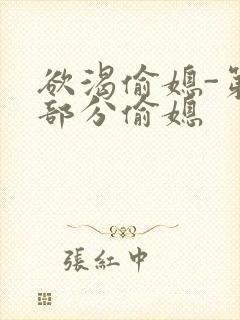 欲渴偷媳-第
部分偷媳
張紅中